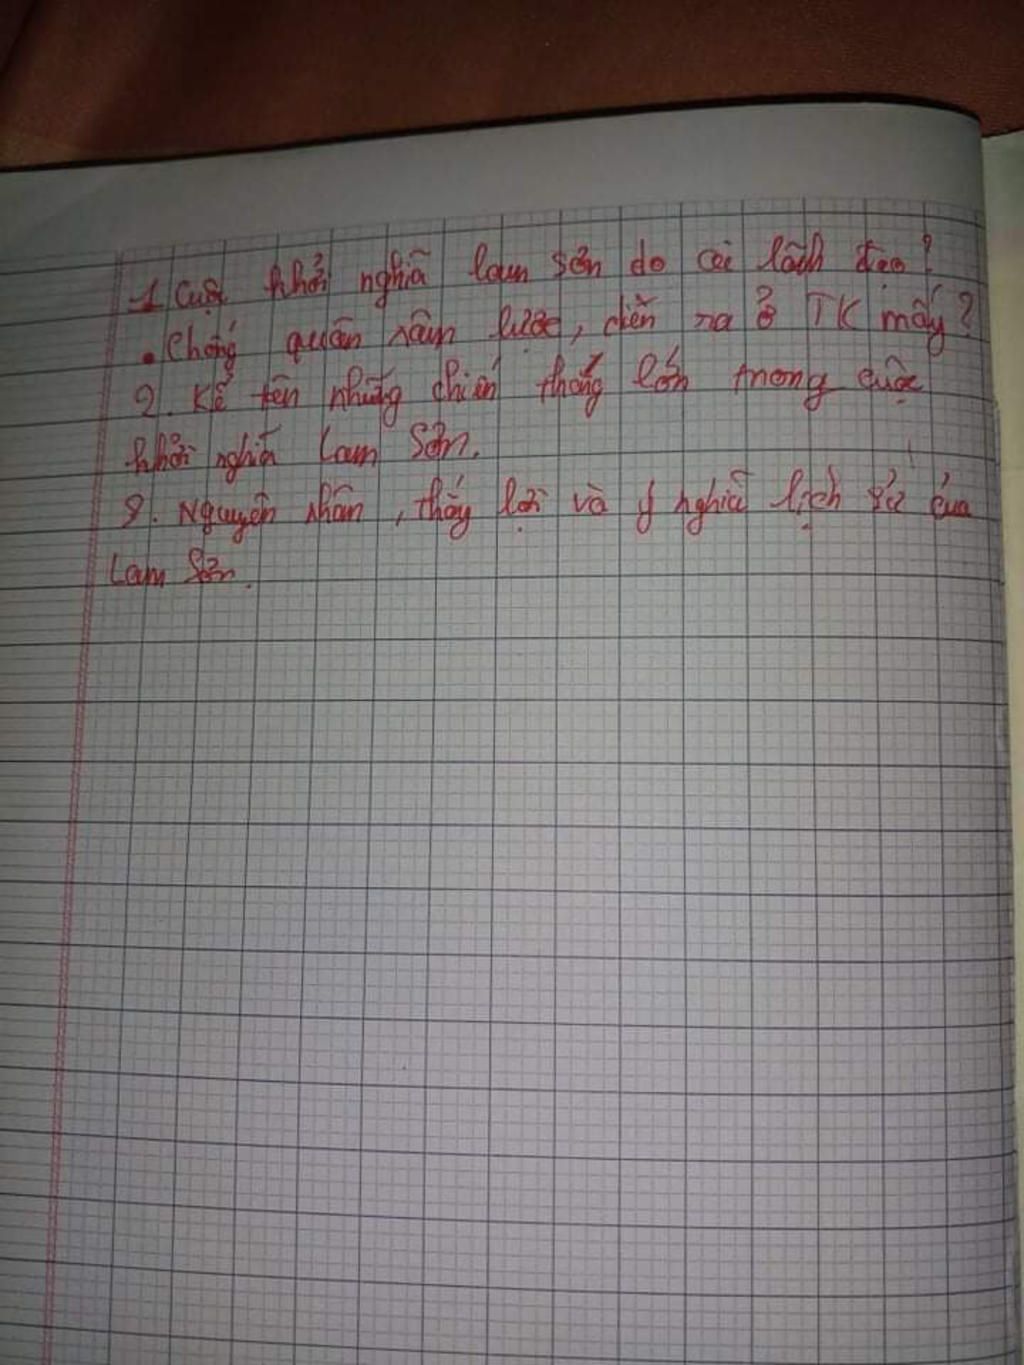 1. Cuộc khởi nghĩa lam sơn do ai lãnh đạo?
. Chống quân xâm lược, diễn ra ở TK mấy?
2. Kể tên những chiến thắng lớn trong cuộc
khởi nghĩa Lam Sơn.
3. Nguyên nhân, thắng lợi và ý nghĩa lịch sử của
Lam Sơn.